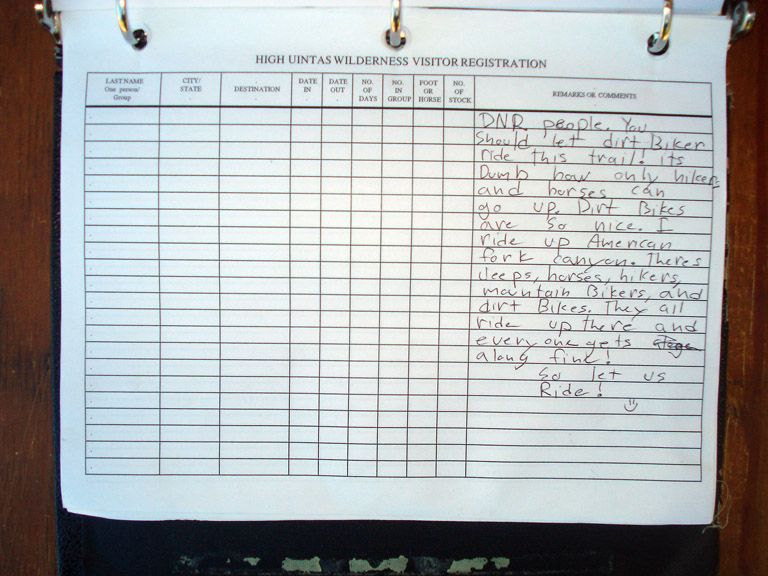 HIGH UINTAS WILDERNESS VISITOR REGISTRATION
LAST NAME One person/ Group
CITY/ STATE
DESTINATION
DATE IN
DATE OUT
NO. OF DAYS
NO. IN GROUP
FOOT OR HORSE
NO. OF STOCK
REMARKS OR COMMENTS
DNR people. You
Should let dirt Biker
ride this trail! its
Dumb how only hikers
and horses can
go up. Dirt Bikes
are so nice. I
ride up American
fork canyon. Theres
jeeps, horses, hikers,
mountain Bikers, and
dirt Bikes. They all
ride up there and
every one gets
along fine!
So let us
Ride!